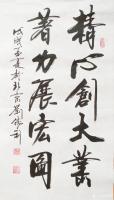 精心創大業
著力展宏圖
戊戌夏於北京劉